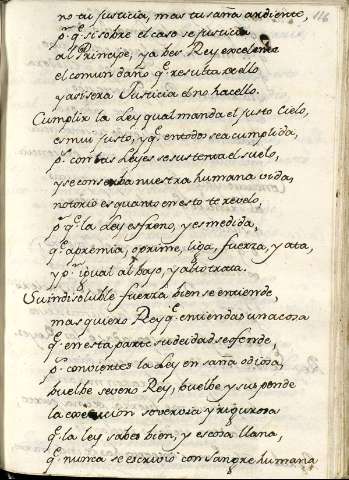 no tu justicia, mas tu saña ardiente, 116
pr q̃ si sobre el caso se justicia
al Principe, ya ves Rey excelente
el comun daño q̃ resulta de ello
y asi sera Justicia el no hacello.
Cumplir la Ley qual manda el justo Cielo,
es mui justo, y q̃ en todo sea cumplida,
pr con las Leyes se sustenta el suelo,
y se conserba nuestra humana vida,
notorio es quanto en esto te revelo,
pr q̃ la Ley es freno, y es medida,
q̃ apremia, oprime, liga, fuerza, y ata,
y pr igual al bajo, y alto trata.
Su indisoluble fuerza bien se entiende,
mas quiero Rey q̃ entiendas una cosa
q̃ en esta parte su deidad se ofende,
pr conviertes la Ley en saña odiosa,
buelbe severo Rey, buelbe y suspende
la execucion sovervia y rigurosa
q̃ la ley sabes bien, y es cosa llana,
q̃ nunca se escrivió con sangre humana